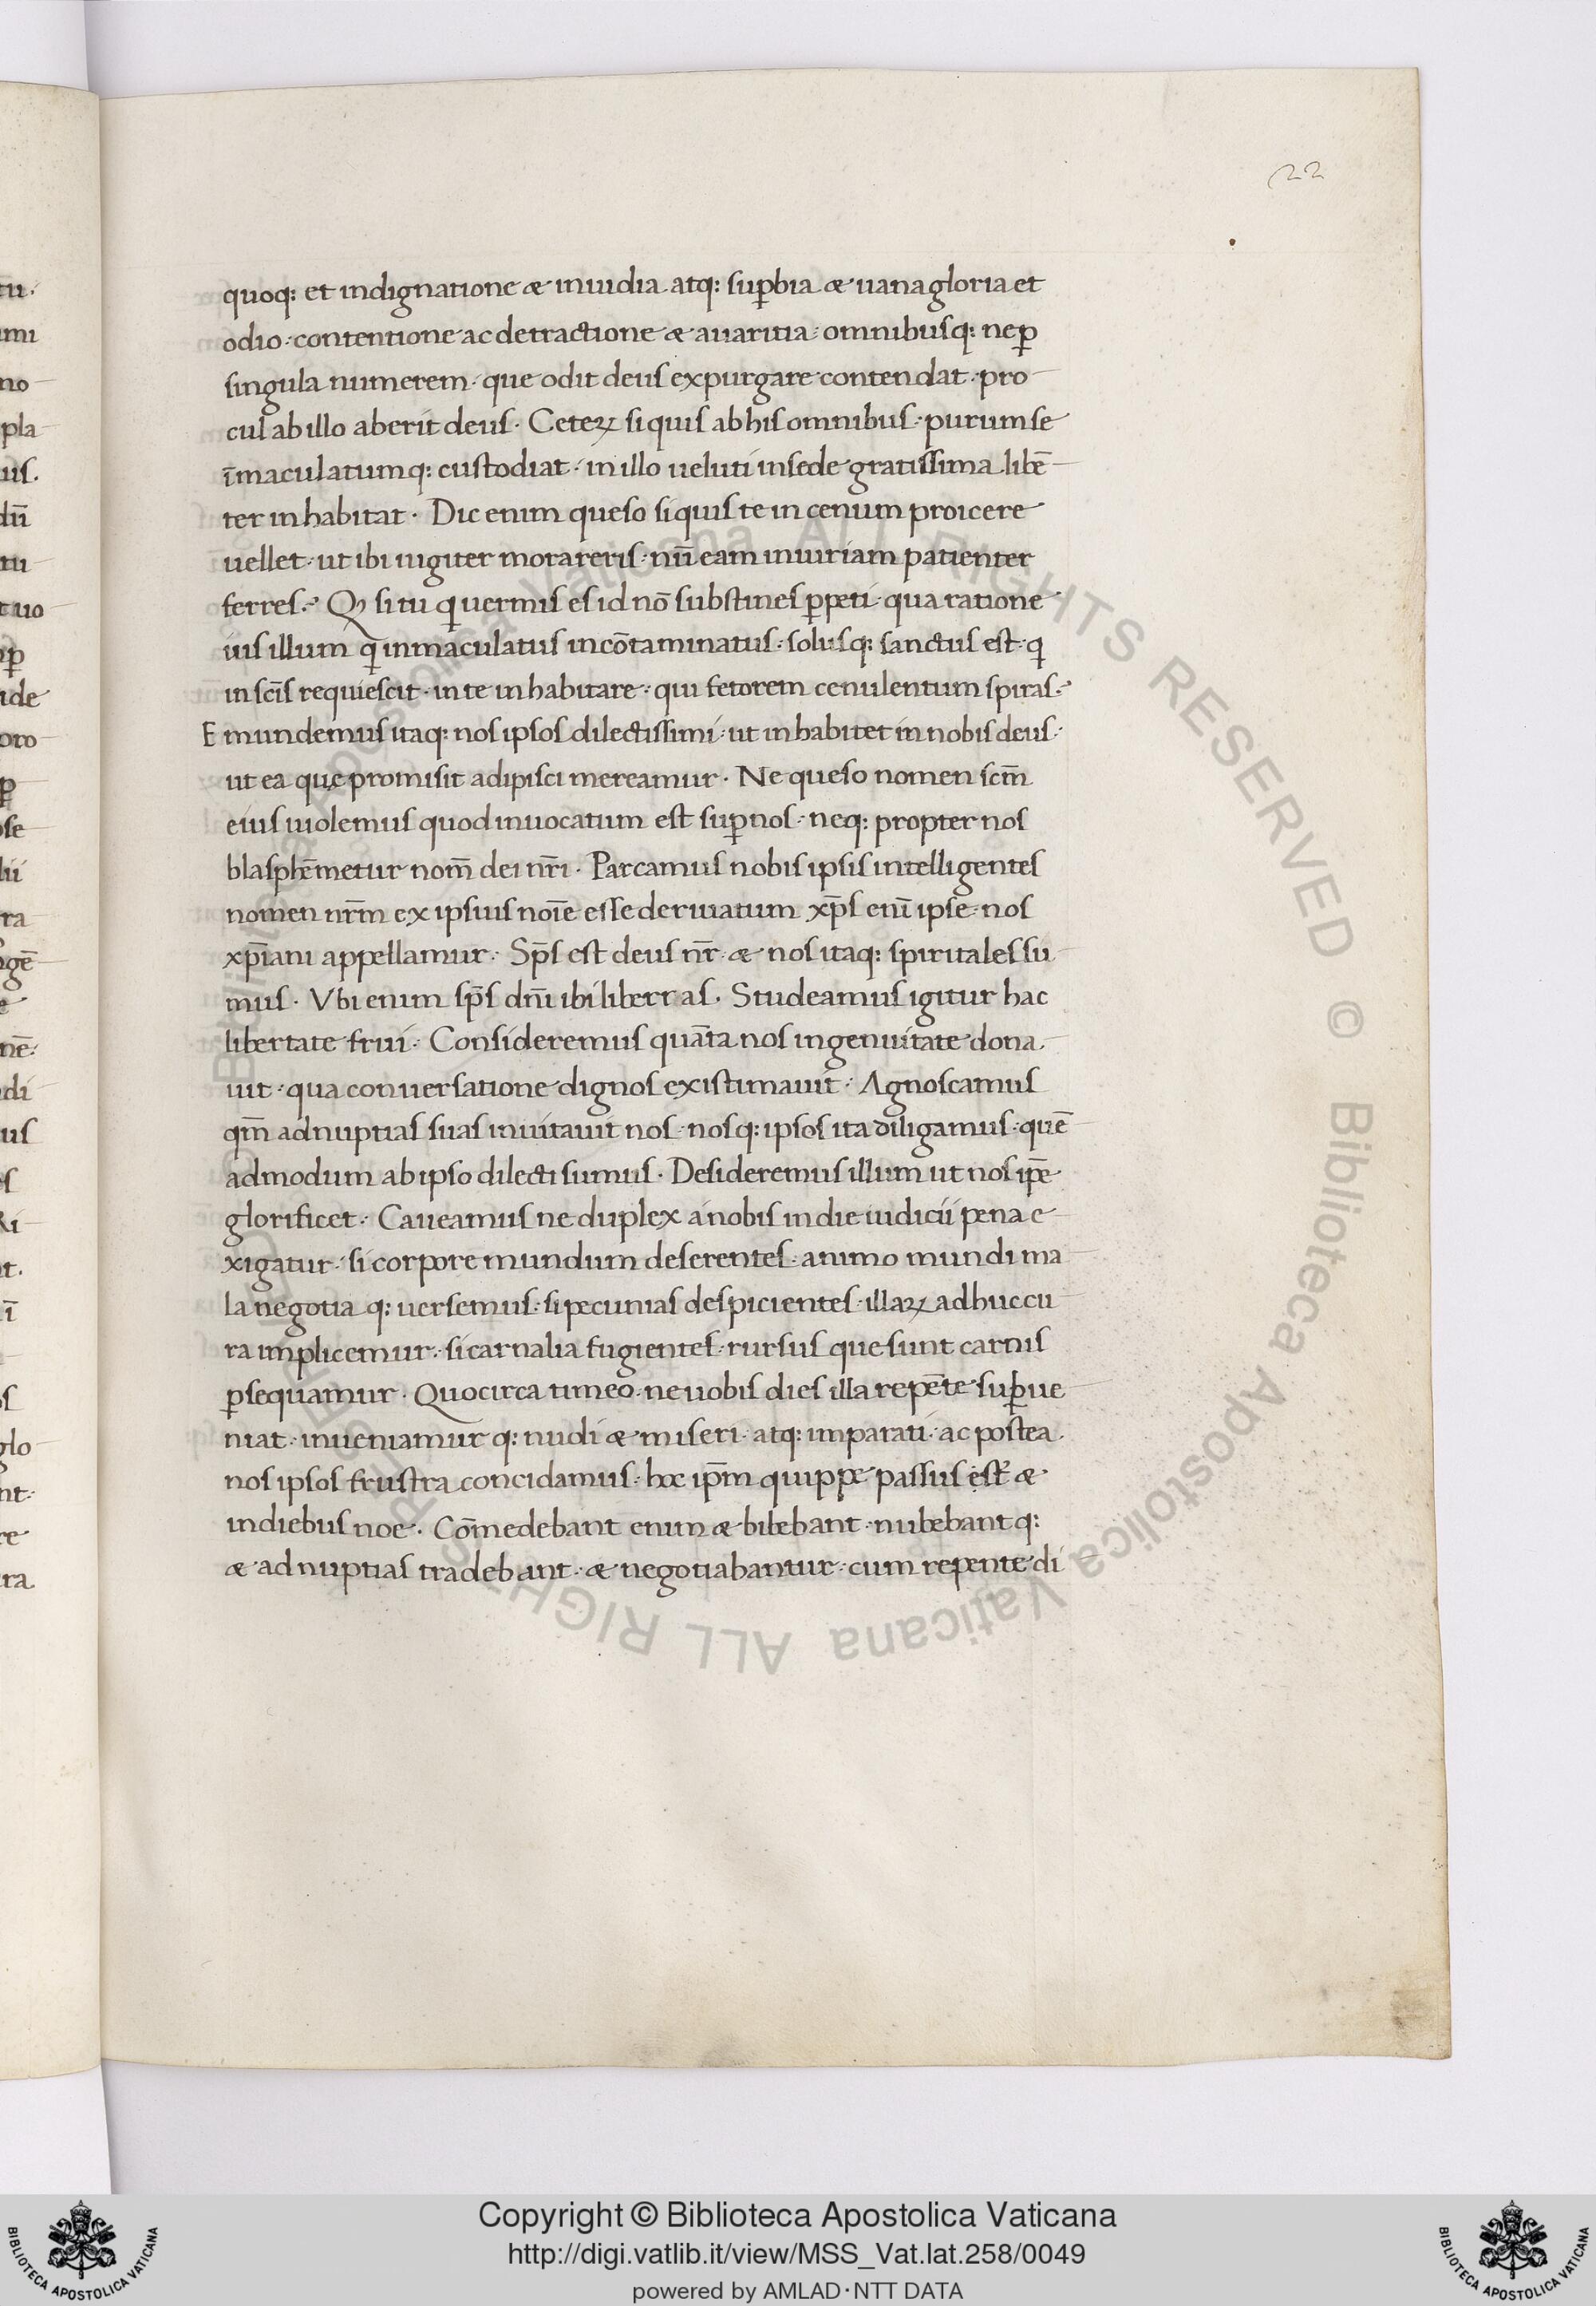 22
quoq: et indignatione & inuidia atq: sup̱bia & uana gloria et
odio · contentione ac detractione & auaritia · omnibusq: ne p̱
singula numerem · que odit deus expurgare contendat · pro
cul ab illo aberit deus · Ceteꝝ si quis ab his omnibus · purum se
īmaculatumq: custodiat · in illo ueluti in sede gratissima libē
ter inhabitat · Dic enim queso si quis te in cenum proicere
uellet · ut ibi iugiter morareris · nū eam iniuriam patienter
ferres? Q si tu q uermis es id nō substines p̱peti · qua ratione
uis illum q inmaculatus incōtaminatus · solusq: sanctus est · q
in scīs requiescit · in te inhabitare · qui fetorem cenulentum spiras?
Emundemus itaq: nos ipsos dilectissimi · ut inhabitet in nobis deus ·
ut ea quę promisit adipisci mereamur · Ne queso nomen scm̄
eius uiolemus quod inuocatum est sup̱ nos · neq: propter nos
blasphēmetur nom̄ dei nr̄i · Parcamus nobis ipsis intelligentes
nomen nr̄m ex ipsius noīe esse deriuatum xp̄s enī ipse · nos
xp̄iani appellamur · Sp̄s est deus nr̄ · & nos itaq: spiritales su
mus · Vbi enim sp̄s dn̄i ibi libertas · Studeamus igitur hac
libertate frui · Consideremus quāta nos ingenuitate dona
uit · qua conuersatione dignos existimauit · Agnoscamus
qm̄ ad nuptias suas inuitauit nos · nosq: ipsos ita diligamus · quē
admodum ab ipso dilecti sumus · Desideremus illum ut nos ip̄e
glorificet · Caueamus ne duplex a nobis in die iudicii pena e
xigatur · si corpore mundum deserentes · animo mundi ma
la negotia q: uersemus · si pecunias despicientes · illaꝝ adhuc cu
ra implicemur · si carnalia fugientes · rursus que sunt carnis
p̱sequamur · Quocirca timeo · ne uobis dies illa repēte sup̱ue
niat · inueniamur q: nudi & miseri · atq: imparati · ac postea
nos ipsos frustra concidamus · hoc ip̄m quippe passus est &
in diebus noe · Cōmedebant enim & bibebant · nubebant q:
& ad nuptias tradebant · & negotiabantur · cum repente di
Copyright © Biblioteca Apostolica Vaticana
http://digi.vatlib.it/view/MSS_Vat.lat.258/0049
powered by AMLAD·NTT DATA